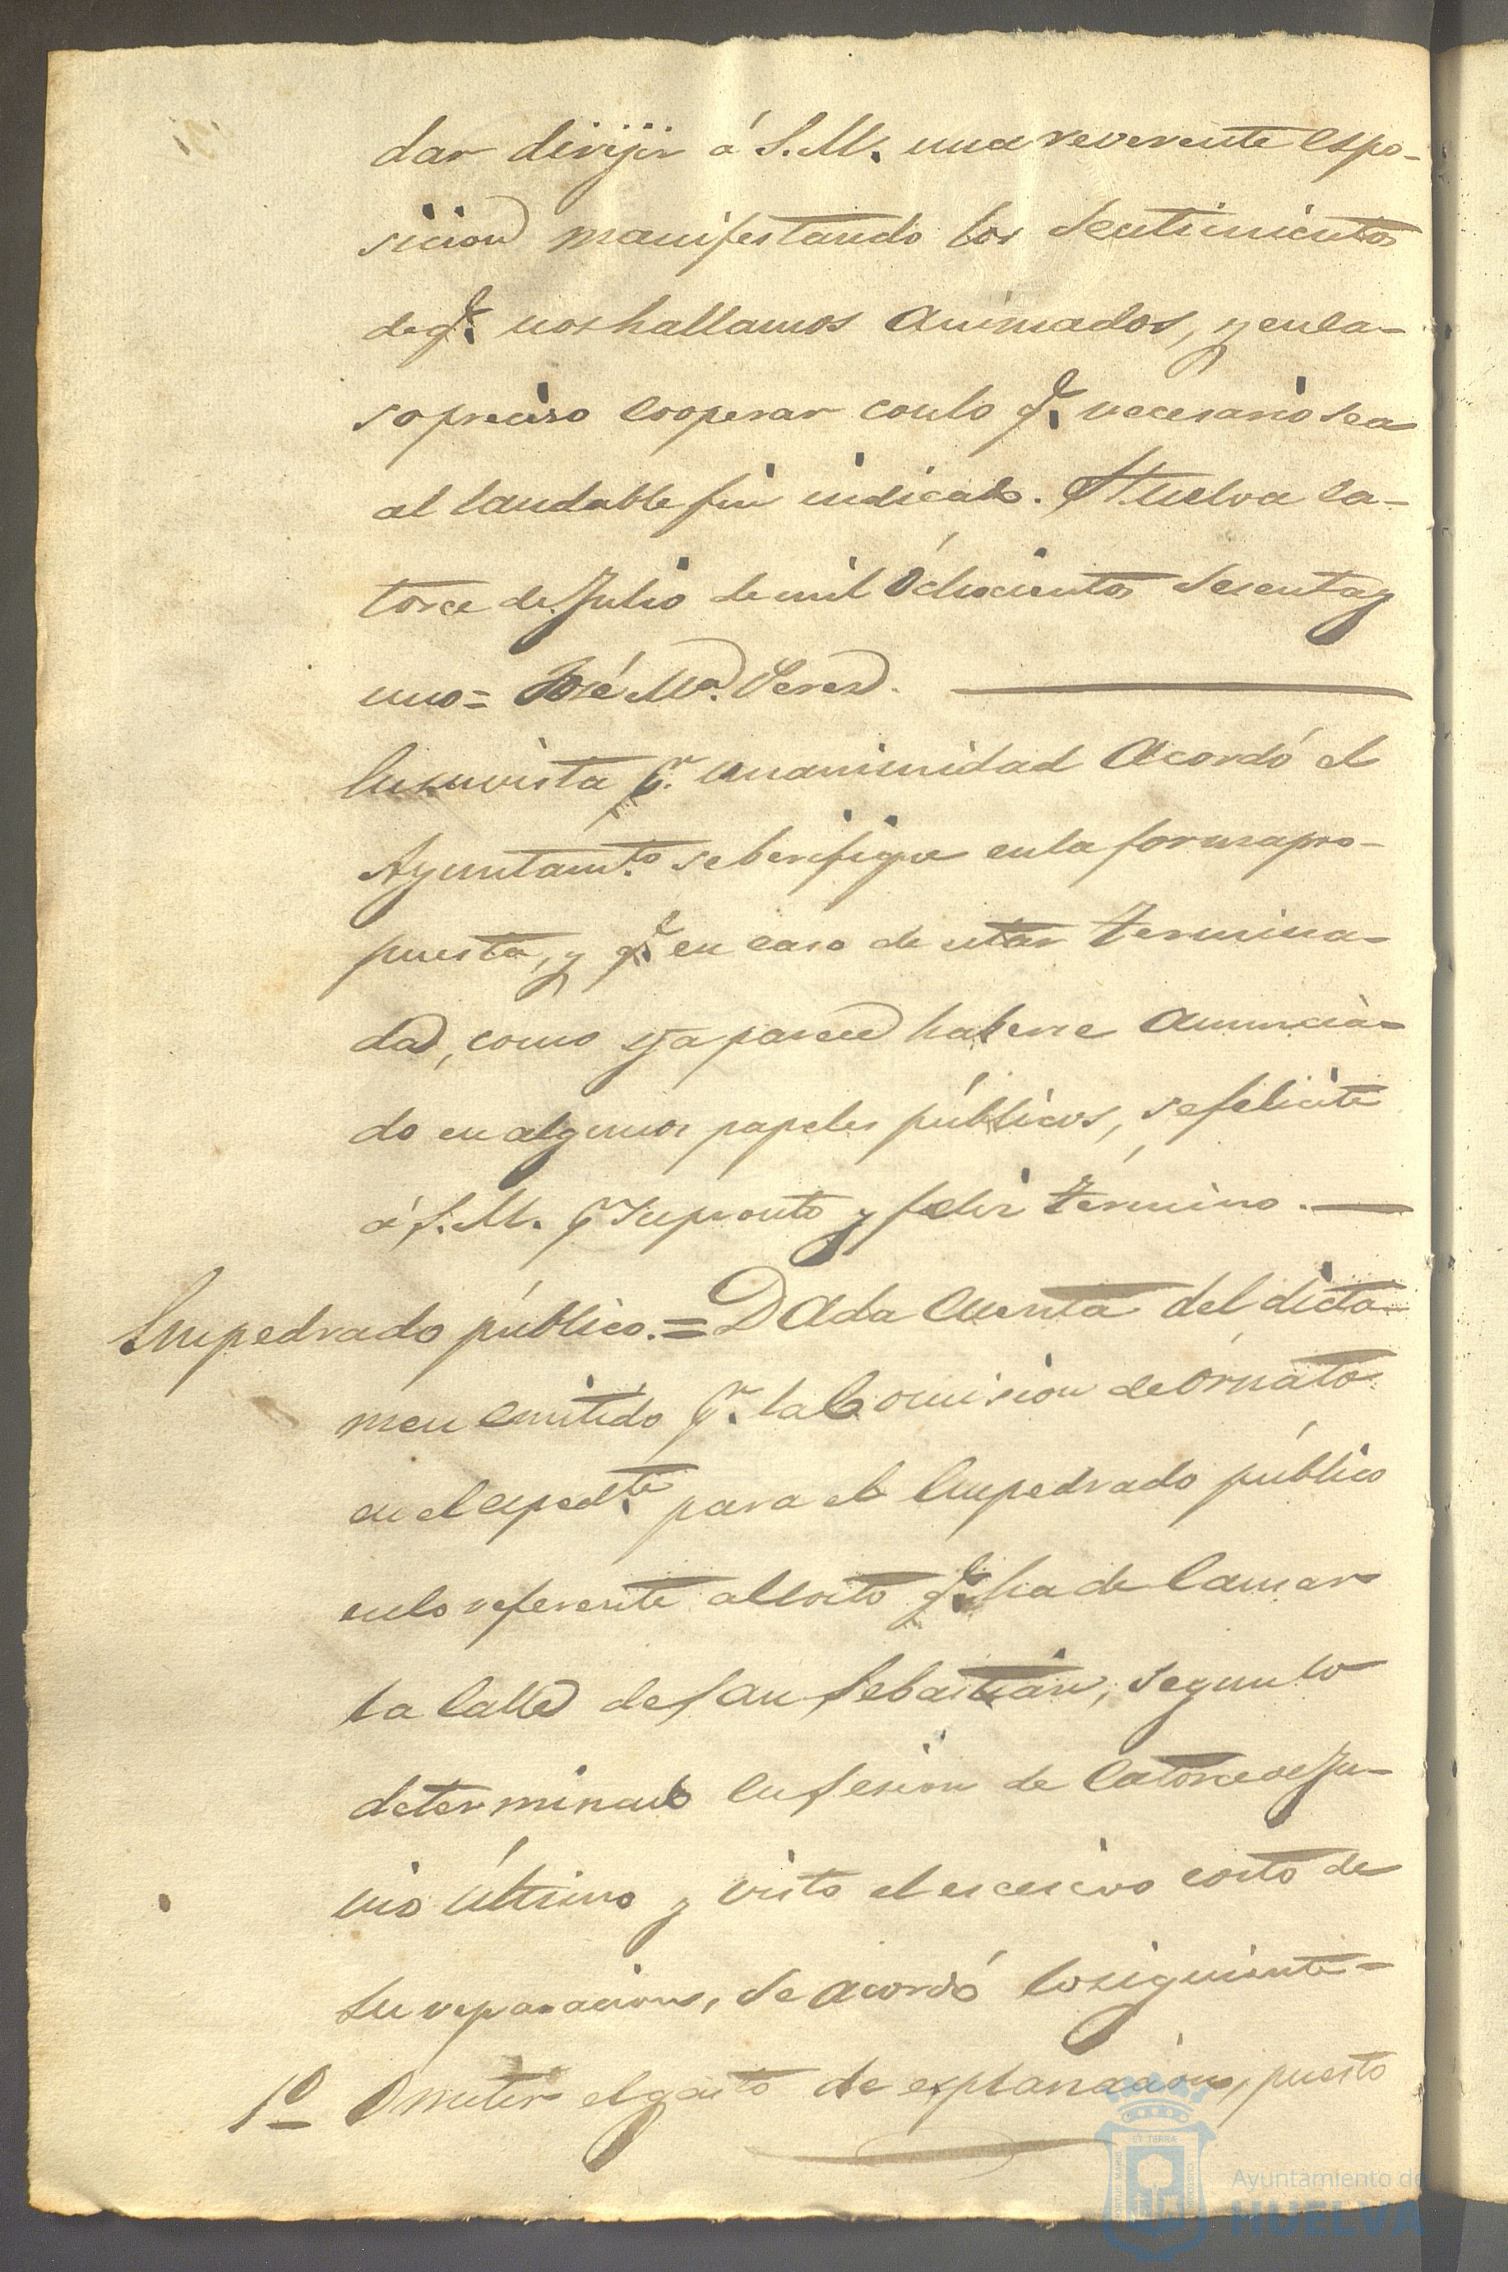 dar dirijir á S.M. una reverente espo-
sicion manifestando los sentimientos
de q.e nos hallamos animados, y en ca-
so preciso cooperar con lo q.e necesario sea
al laudable fin indicado. Huelva ca-
torce de Julio de mil ochocientos sesenta y
uno = José M.a Perez.
En su vista p.r unanimidad acordó el
Ayuntam.to se berifique en la forma pro-
puesta, y q.e en caso de estar termina-
da, como ya parece haberse anuncia-
do en algunos papeles públicos, se felicite
á S.M. p.r su pronto y feliz término.
Empedrado público. = Dada cuenta del dicta-
men emitido p.r la Comision de órnato
en el exped.te para el Empedrado público
en lo referente al costo q.e ha de causar
la Calle de San Sebastian, segun lo
determinado en sesion de catorce de Ju-
nio último y visto el escesivo costo de
su reparacion, se acordó lo siguiente =
1º Omitir el gasto de explanacion, puesto
Ayuntamiento de
HUELVA